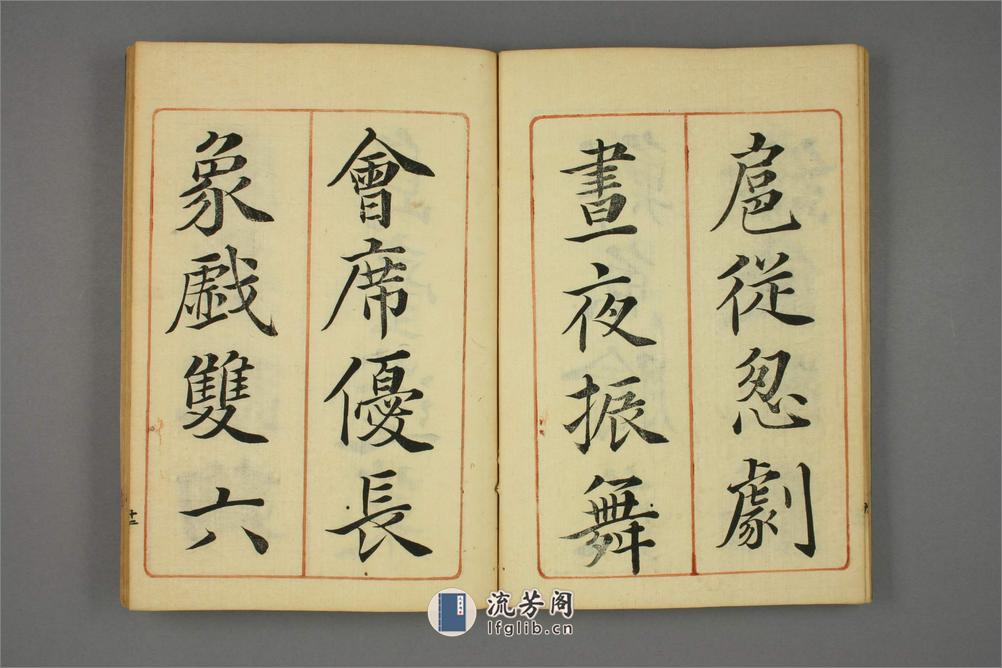 扈從怱劇
晝夜振舞
會席優長
象戯雙六
十二
流芳阁
lfglib.cn